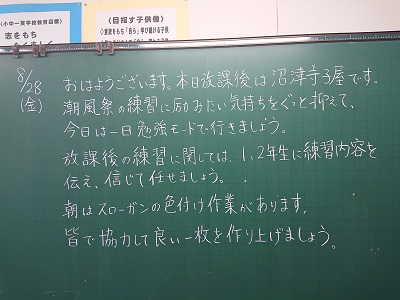 (小中一貫学校教育目標)
志をもち
(目指す子供像)
◇意欲をもち「自ら」学び続ける子供
8/28
(金)
おはようございます。本日放課後は沼津寺子屋です。
潮風祭の練習に励みたい気持ちをぐっと抑えて、
今日は一日勉強モードで行きましょう。
放課後の練習に関しては、1,2年生に練習内容を
伝え、信じて任せましょう。
朝はスローガンの色付け作業があります。
皆で協力して良い一枚を作り上げましょう。